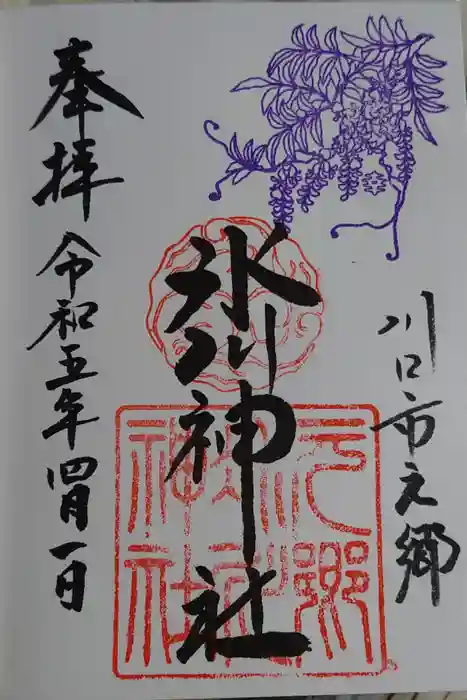 川口市元郷
氷川神社
奉拝
令和五年四月一日
元郷氷川神社